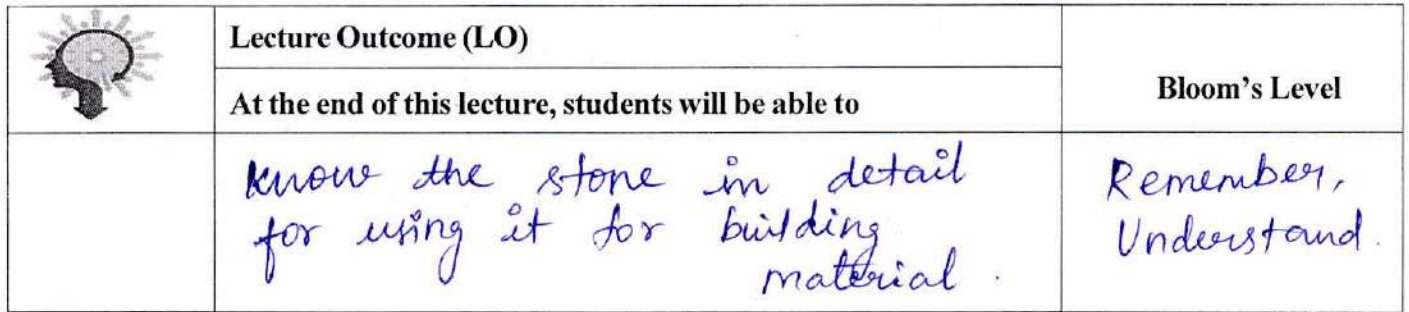 Lecture Outcome (LO)
At the end of this lecture, students will be able to
Bloom's Level
know the stone in detail
for using it for building
material.
Remember,
Understand.